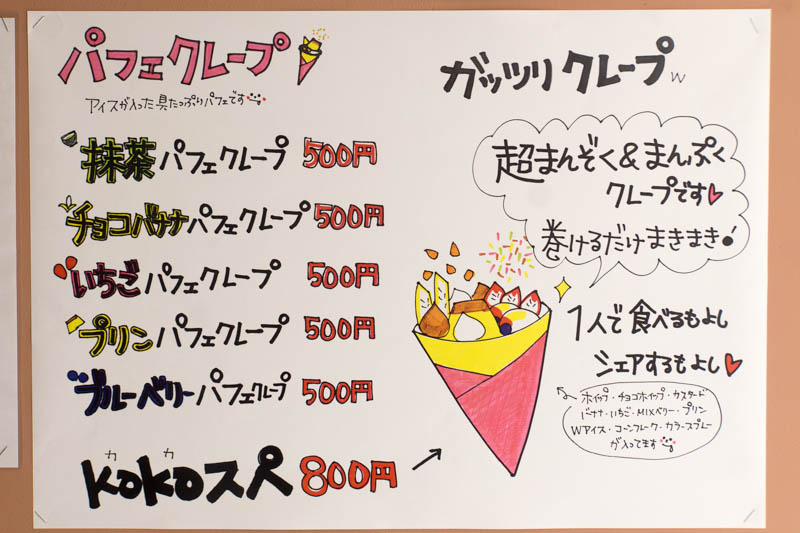 パフェクレープ
アイスが入った具たっぷりパフェです
抹茶パフェクレープ 500円
チョコバナナパフェクレープ 500円
いちごパフェクレープ 500円
プリンパフェクレープ 500円
ブルーベリーパフェクレープ 500円
カ カ
KoKoスペ 800円
ガッツリクレープw
超まんぞく&まんぷく
クレープです♥
巻けるだけまきまき!
1人で食べるもよし
シェアするもよし♥
ホイップ・チョコホイップ・カスタード
バナナ・いちご・MIXベリー・プリン
Wアイス・コーンフレーク・カラースプレー
が入ってます